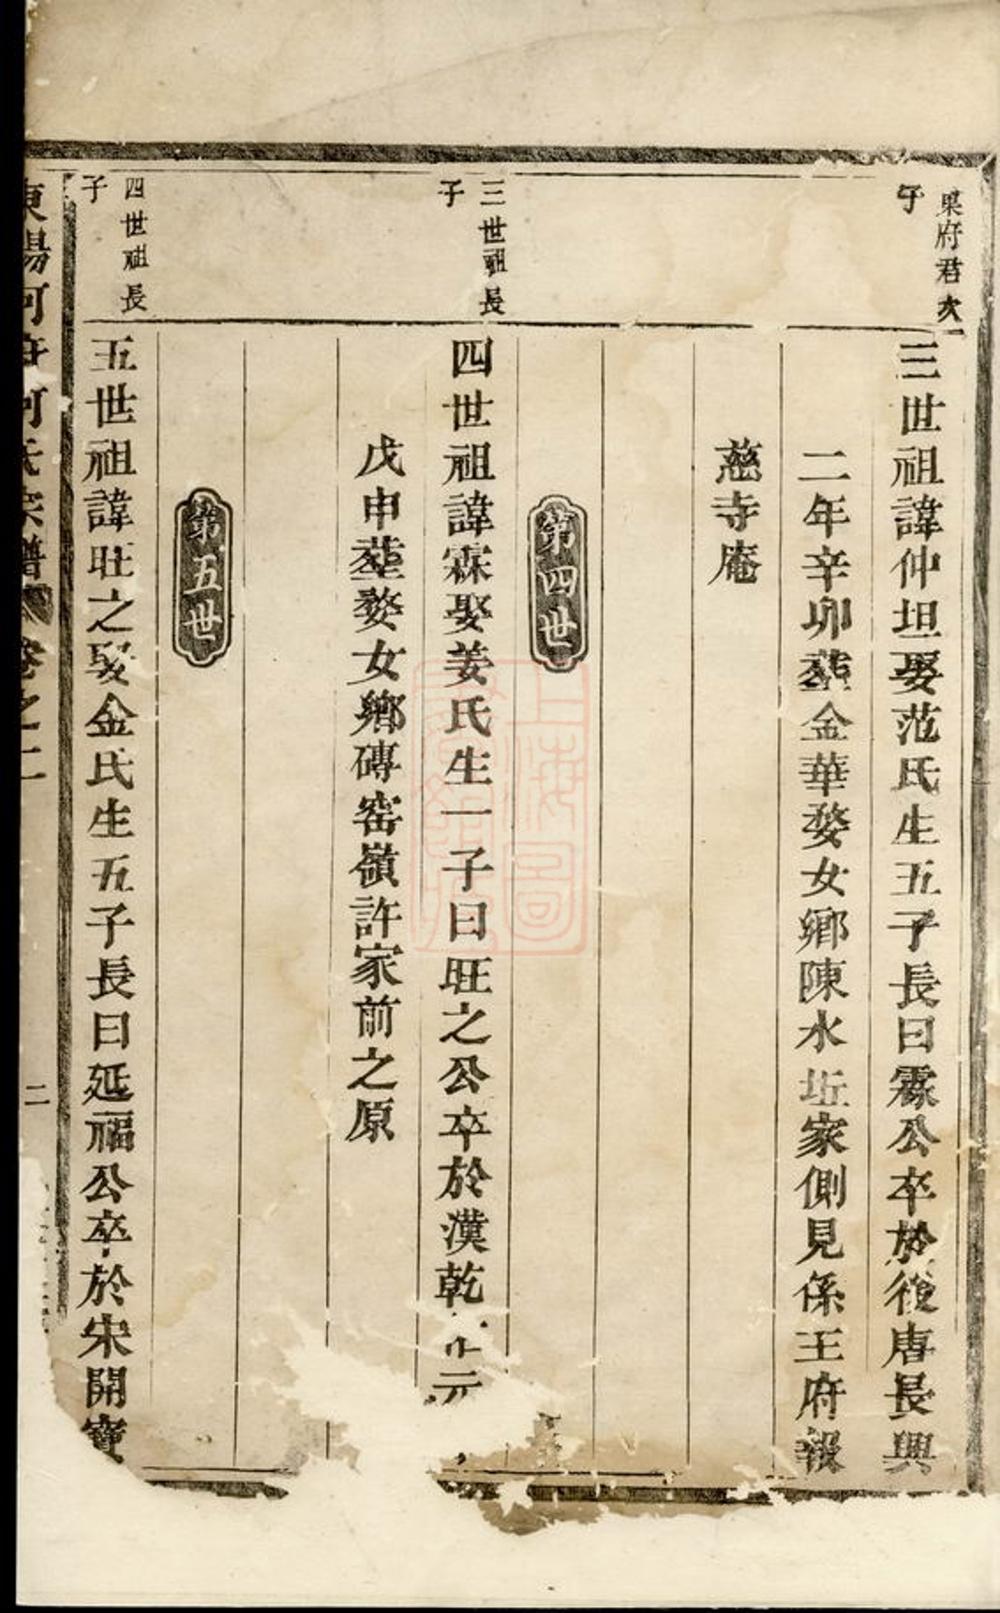 杲府君次
子
三世祖諱仲坦娶范氏生五子長曰霖公卒於後唐長興
二年辛卯塟金華婺女鄉陳水坵家側見係王府報
慈寺庵
第四世
三世祖長
子
四世祖諱霖娶姜氏生一子曰旺之公卒於漢乾元
戊申塟婺女鄉磚窑嶺許家前之原
第五世
四世祖長
子
五世祖諱旺之娶金氏生五子長曰延福公卒於宋開寶
東陽何府何氏宗譜 卷之二 二